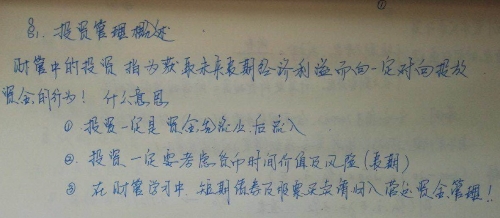 ①
§1. 投资管理概述
财管中的投资 指为获取未来长期经济利益而向一定对向投放
资金的行为! 什么意思
① 投资一定是资金先流出,后流入
② 投资一定要考虑货币时间价值及风险(长期)
③ 在财管学习中,短期债券及股票买卖请归入营运资金管理!!